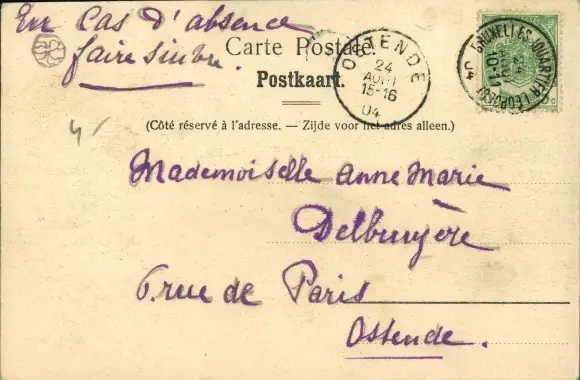 En Cas d'absence
faire suivre.
Carte Postale.
Postkaart.
OSTENDE
24
AOUT
15-16
04
BRUXELLES (QUARTIER-LEOPOLD)
04
(Côté réservé à l'adresse. — Zijde voor het adres alleen.)
Mademoiselle Anne Marie
Delbruyère
6 rue de Paris
Ostende.